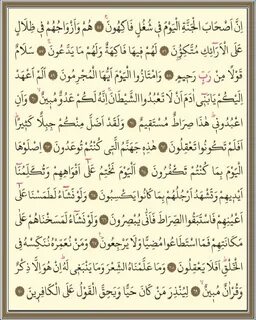 اِنَّ اَصْحَابَ الْجَنَّةِ الْيَوْمَ فٖي شُغُلٍ فَاكِهُونَ ﴿٥٥﴾ هُمْ وَاَزْوَاجُهُمْ فٖي ظِلَالٍ
عَلَى الْاَرَٓائِكِ مُتَّكِؤُ۫نَ ﴿٥٦﴾ لَهُمْ فٖيهَا فَاكِهَةٌ وَلَهُمْ مَا يَدَّعُونَ ﴿٥٧﴾ سَلَامٌ
قَوْلًا مِنْ رَبٍّ رَحٖيمٍ ﴿٥٨﴾ وَامْتَازُوا الْيَوْمَ اَيُّهَا الْمُجْرِمُونَ ﴿٥٩﴾ اَلَمْ اَعْهَدْ
اِلَيْكُمْ يَا بَنٖٓي اٰدَمَ اَنْ لَا تَعْبُدُوا الشَّيْطَانَ اِنَّهُ لَكُمْ عَدُوٌّ مُبٖينٌ ﴿٦٠﴾ وَاَنِ
اعْبُدُونٖي هٰذَا صِرَاطٌ مُسْتَقٖيمٌ ﴿٦١﴾ وَلَقَدْ اَضَلَّ مِنْكُمْ جِبِلًّا كَثٖيرًا
اَفَلَمْ تَكُونُوا تَعْقِلُونَ ﴿٦٢﴾ هٰذِهٖ جَهَنَّمُ الَّتٖي كُنْتُمْ تُوعَدُونَ ﴿٦٣﴾ اِصْلَوْهَا
الْيَوْمَ بِمَا كُنْتُمْ تَكْفُرُونَ ﴿٦٤﴾ اَلْيَوْمَ نَخْتِمُ عَلٰٓى اَفْوَاهِهِمْ وَتُكَلِّمُنَٓا
اَيْدٖيهِمْ وَتَشْهَدُ اَرْجُلُهُمْ بِمَا كَانُوا يَكْسِبُونَ ﴿٦٥﴾ وَلَوْ نَشَٓاءُ لَطَمَسْنَا عَلٰٓى
اَعْيُنِهِمْ فَاسْتَبَقُوا الصِّرَاطَ فَاَنّٰى يُبْصِرُونَ ﴿٦٦﴾ وَلَوْ نَشَٓاءُ لَمَسَخْنَاهُمْ عَلٰى
مَكَانَتِهِمْ فَمَا اسْتَطَاعُوا مُضِيًّا وَلَا يَرْجِعُونَ ﴿٦٧﴾ وَمَنْ نُعَمِّرْهُ نُنَكِّسْهُ فِي
الْخَلْقِ اَفَلَا يَعْقِلُونَ ﴿٦٨﴾ وَمَا عَلَّمْنَاهُ الشِّعْرَ وَمَا يَنْبَغٖي لَهُ اِنْ هُوَ اِلَّا ذِكْرٌ
وَقُرْاٰنٌ مُبٖينٌ ﴿٦٩﴾ لِيُنْذِرَ مَنْ كَانَ حَيًّا وَيَحِقَّ الْقَوْلُ عَلَى الْكَافِرٖينَ ﴿٧٠﴾